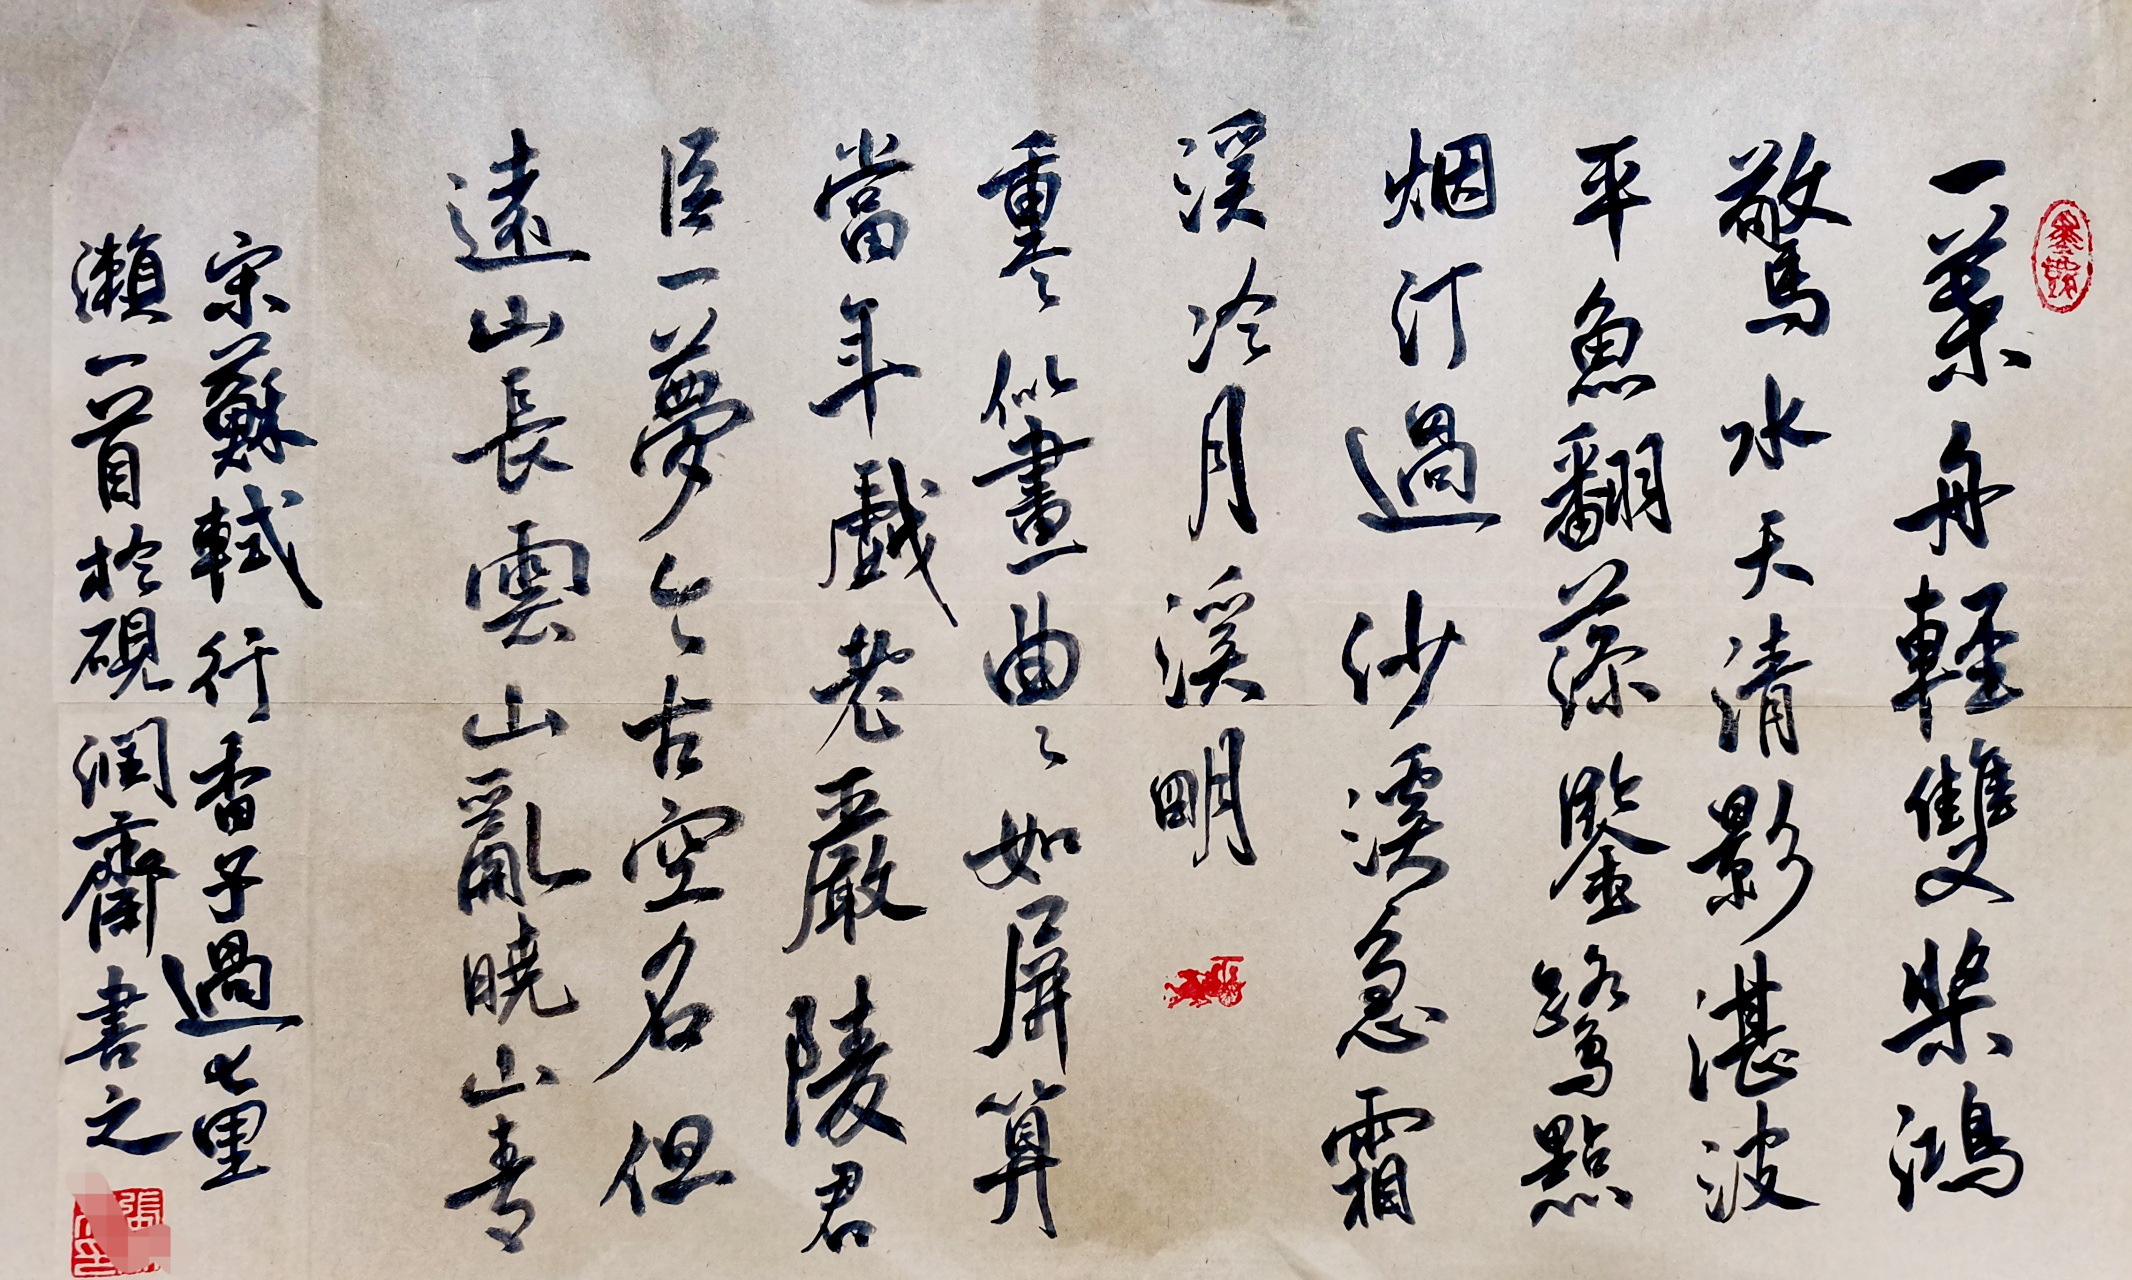 一葉舟輕雙槳鴻
驚水天清影湛波
平魚翻藻鑒鷺點
烟汀過沙溪急霜
溪冷月溪明
重々似畫曲々如屏算
當年戲老嚴陵君
臣一夢今古空名但
遠山長雲山亂曉山青
宋蘇軾行香子過七里
瀨一首於硯潤齋書之
張